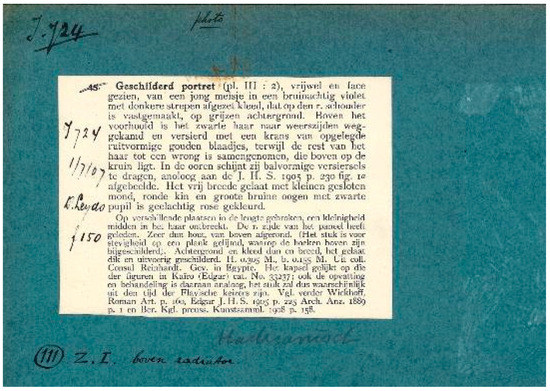 J. 724
photo
45. Geschilderd portret (pl. III : 2), vrijwel en face
gezien, van een jong meisje in een bruinachtig violet
met donkere strepen afgezet kleed, dat op den r. schouder
is vastgemaakt, op grijzen achtergrond. Boven het
voorhoofd is het zwarte haar naar weerszijden weg-
gekamd en versierd met een krans van opgelegde
ruitvormige gouden blaadjes, terwijl de rest van het
haar tot een wrong is samengenomen, die boven op de
kruin ligt. In de ooren schijnt zij balvormige versiersels
te dragen, analoog aan de J. H. S. 1905 p. 230 fig. 10
afgebeelde. Het vrij breede gelaat met kleinen gesloten
mond, ronde kin en groote bruine oogen met zwarte
pupil is geelachtig rosé gekleurd.
Op verschillende plaatsen in de lengte gebroken, een kleinigheid
midden in het haar ontbreekt. De r. zijde van het paneel heeft
geleden. Zeer dun hout, van boven afgerond. (Het stuk is voor
stevigheid op een plank gelijmd, waarop de hoeken boven zijn
bijgeschilderd). Achtergrond en kleed dun en breed, het gelaat
dik en uitvoerig geschilderd. H. 0.305 M., b. 0.155 M. Uit coll.
Consul Reinhardt. Gev. in Egypte. Het kapsel gelijkt op die
der figuren in Kaïro (Edgar) cat. No. 33237; ook de opvatting
en behandeling is daaraan analoog, het stuk zal dus waarschijnlijk
uit den tijd der Flavische keizers zijn. Vgl. verder Wickhoff,
Roman Art. p. 160, Edgar J. H. S. 1905 p. 225 Arch. Anz. 1889
p. 1 en Ber. Kgl. preuss. Kunstsamml. 1908 p. 158.
J 724
1/7/07
f 150
111 Z. I. boven radiator.